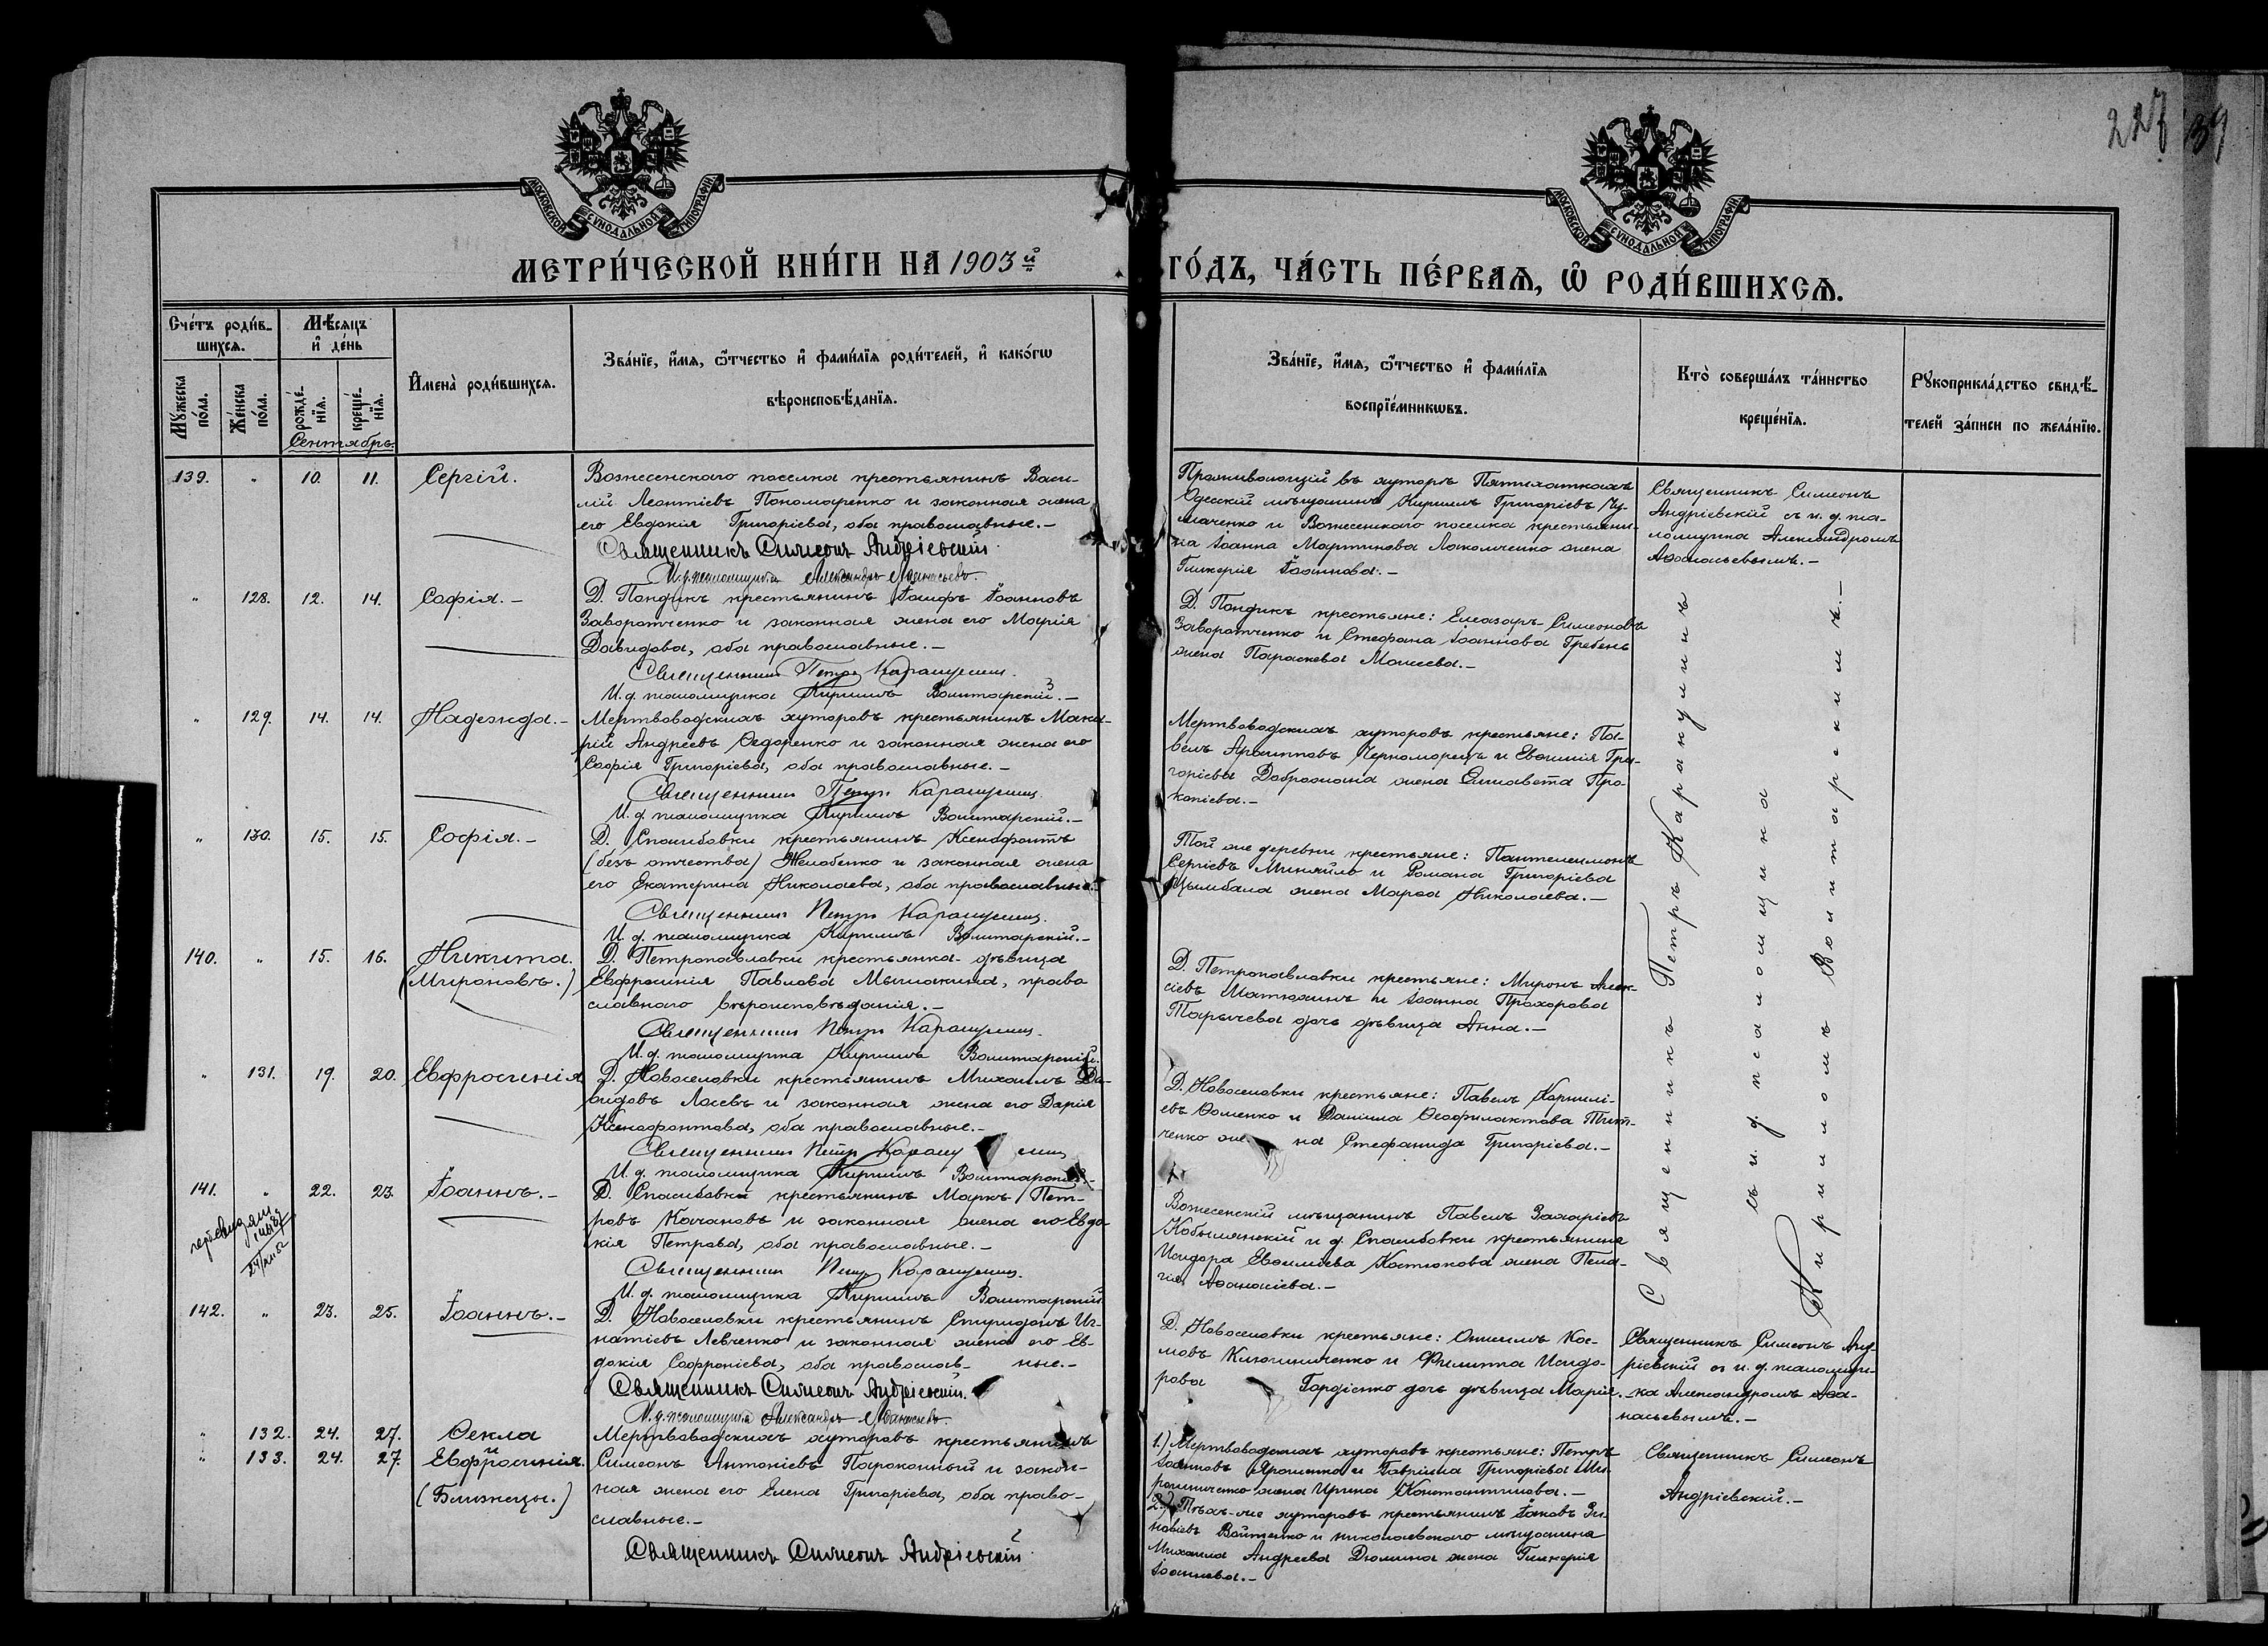 227
39
МОСКОВСКОЙ СѴНОДАЛЬНОЙ ТИПОГРАФІИ
МОСКОВСКОЙ СѴНОДАЛЬНОЙ ТИПОГРАФІИ
МЕТРИ́ЧЕСКОЙ КНИ́ГИ НА 1903й ГО́ДЪ, ЧА́СТЬ ПЕ́РВАѦ, Ѽ РОДИ́ВШИХСѦ.
Сче́тъ роди́в-
шихсѧ.
Мѣ́сяцъ
и҆ де́нь
Мꙋ́жеска по́ла.
Же́нска по́ла.
рожде́-нїѧ.
креще́-нїѧ.
И҆мена̀ роди́вшихсѧ.
Зва́нїе, и҆́мѧ, ѻ҆́тчество и҆ фами́лїѧ роди́телей, и҆ како́гѡ
вѣроисповѣ́данїѧ.
Зва́нїе, и҆́мѧ, ѻ҆́тчество и҆ фами́лїѧ
воспрїе́мникѡвъ.
Кто̀ соверша́лъ та́инство
креще́нїѧ.
Рꙋкоприкла́дство свидѣ́-
телей за́писи по жела́нїю.
Сентябрь.
139. " 10. 11. Сергій.
Вознесенскаго поселка крестьянинъ Васи-
лій Леонтіевъ Пономаренко и законная жена
его Евдокія Григоріева, оба православные.-
Священникъ Симеонъ Андріевскій
И. д. псаломщика Александръ Аѳанасьевъ.
Проживающій въ хуторѣ Пятихаткахъ
Одесскій мѣщанинъ Кириллъ Григоріевъ Чу-
маченко и Вознесенскаго поселка крестьяни-
на Іоанна Мартинова Лакомченко жена
Гликерія Іоаннова.-
Священникъ Симеонъ
Андріевскій съ и. д. пса-
ломщика Александромъ
Аѳанасьевымъ.-
" 128. 12. 14. Софія.-
Д. Пондикъ крестьянинъ Іосифъ Іоанновъ
Заворотченко и законная жена его Марія
Давидова, оба православные.-
Священникъ Петръ Каракулинъ.
И. д. псаломщика Кириллъ Войтарскій.-
Д. Пондикъ крестьяне: Елеазаръ Симеоновъ
Заворотченко и Стефана Іоаннова Гребень
жена Параскева Моисеева.-
" 129. 14. 14. Надежда.-
Мертвоводскихъ хуторовъ крестьянинъ Мака-
рій Андреевъ Ѳедоренко и законная жена его
Софія Григоріева, оба православные.-
Священникъ Петръ Каракулинъ.
И. д. псаломщика Кириллъ Войтарскій.-
Мертвоводскихъ хуторовъ крестьяне: Па-
велъ Черноморецъ и Евѳимія Гри-
горіева жена Елисавета Про-
копіева.-
" 130. 15. 15. Софія.-
Д. Спасибовки крестьянинъ Ксенофонтъ
(безъ отчества) Желобенко и законная жена
его Екатерина Николаева, оба православные.-
Священникъ Петръ Каракулинъ.
И. д. псаломщика Кириллъ Войтарскій.-
Той же деревни крестьяне: Пантелеимонъ
Сергіевъ Миняйло и Романа Григоріева
Цымбала жена Марѳа Николаева.-
140. " 15. 16. Никита.
(Мироновъ.)
Д. Петропавловки крестьянка-дѣвица
Евфросинія Павлова Мышакина, право
славнаго вѣроисповѣданія.-
Священникъ Петръ Каракулинъ.
И. д. псаломщика Кириллъ Войтарскій.
Д. Петропавловки крестьяне: Миронъ Алек-
сіевъ Матюхинъ и Іоанна Прохорова
Тарычева дочь дѣвица Анна.-
" 131. 19. 20. Евфросинія
Д. Новоселовки крестьянинъ Михаилъ Да-
видовъ Лосевъ и законная жена его Дарія
Ксенофонтова, оба православные.-
Священникъ Петръ Караку линъ
И. д. псаломщика Кириллъ Войтарскій.-
Д. Новоселовки крестьяне: Павелъ Корнилі-
евъ Ѳоменко и Даніила Ѳеофилактова Тит-
ченко же на Стефанида Григоріева.-
141. " 22. 23. Іоаннъ.-
Д. Спасибовки крестьянинъ Маркъ Пет-
ровъ Качановъ и законная жена его Евдо
кія Петрова, оба православные.-
Священникъ Петръ Каракулинъ.
И. д. псаломщика Кириллъ Войтарскій
Вознесенскій мѣщанинъ Павелъ Захаріевъ
Кобылянскій и д. Спасибовки крестьянина
Исидора Евѳиміева Костюкова жена Пела-
гія Аѳанасіева.-
Священникъ Петръ Каракулинъ
съ и. д. псаломщика
Кирилломъ Войтарскимъ.-
142. " 23. 25. Іоаннъ.-
Д. Новоселовки крестьянинъ Спиридонъ Иг-
натіевъ Левченко и законная жена его Ев-
докія Софроніева, оба православ- ные.-
Священникъ Симеонъ Андріевскій.
И. д. псаломщика Александръ Аѳанасьевъ.
Д. Новоселовки крестьяне: Онисимъ Кос-
мовъ Ключниченко и Филиппа Исидо-
рова Гордіенко дочь дѣвица Марія.-
Священникъ Симеонъ Анд-
ріевскій съ и. д. псаломщи-
ка Александромъ Аѳа-
насьевымъ.-
" 132. 24. 27. Ѳекла
и
" 133. 24. 27. Евфросинія.
(Близнецы.)
Мертвоводскихъ хуторовъ крестьянинъ
Симеонъ Антоніевъ Тараканный и закон-
ная жена его Елена Григоріева, оба право-
славные.-
Священникъ Симеонъ Андріевскій
1.) Мертвоводскихъ хуторовъ крестьяне: Петръ
Іоанновъ Ярошенко и Гавріила Григоріева Ми-
рошниченко жена Ирина Константинова.-
2.) Тѣхъ-же хуторовъ крестьянинъ Іаковъ Зи-
новіевъ Войтенко и николаевскаго мѣщанина
Михаила Андреева Дюмина жена Гликерія
Іоаннова.-
Священникъ Симеонъ
Андріевскій.-